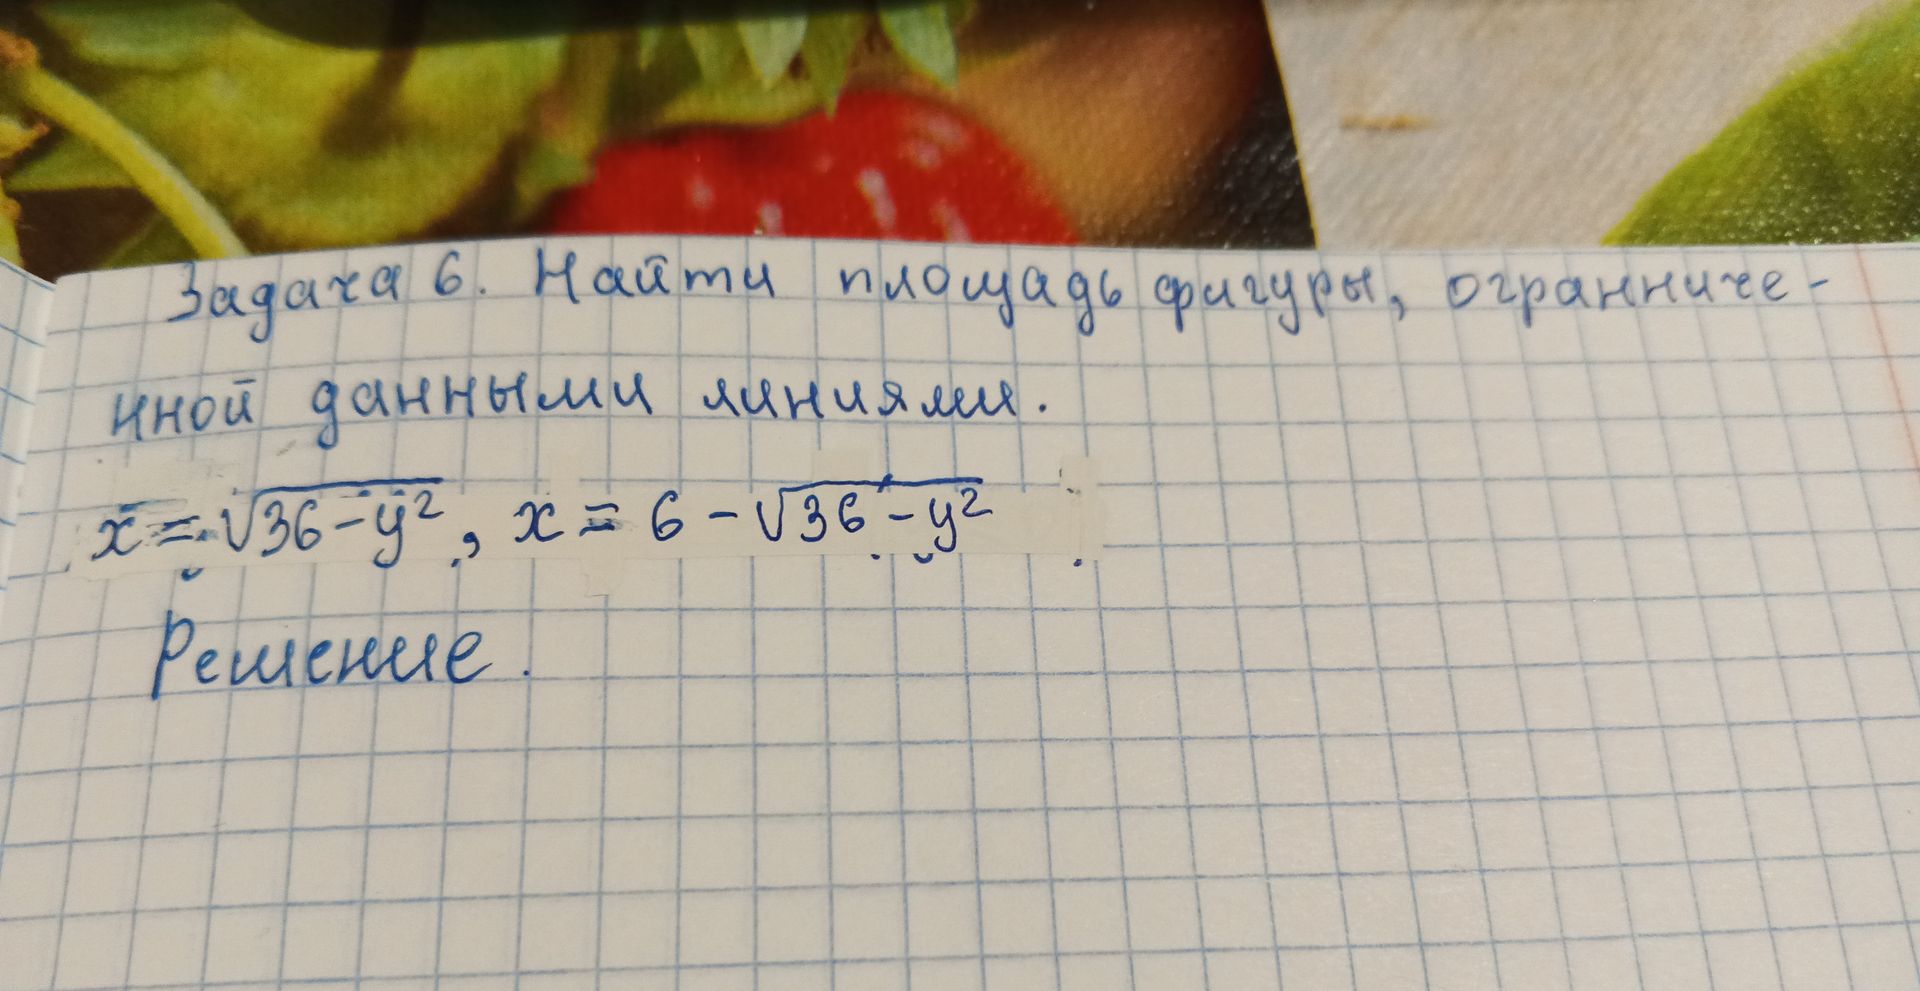 Задача 6. Найти площадь фигуры, огранниче-
нной данными линиями.
x = √36-y², x = 6 - √36-y²
Решение.